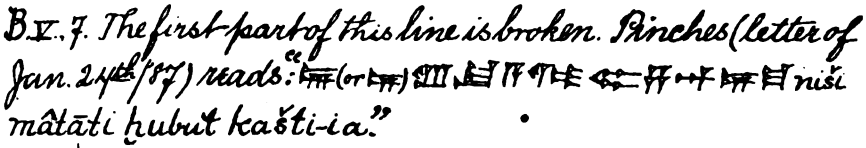 B.V.7. The first part of this line is broken. Pinches (letter of
Jan. 24th/87) reads: “ (or ) niši
mâtāti ḫubut ḳašti-ia.”